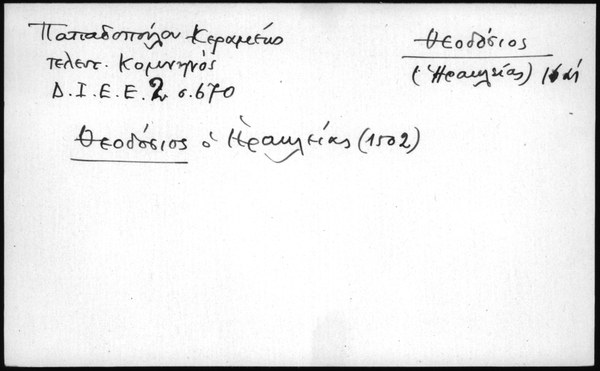 Παπαδοπούλου Κεραμεύς
τελευτ. Κομνηνός
Δ.Ι.Ε.Ε. 2 σ.670
Θεοδόσιος
(Ἡρακλείας)
Θεοδόσιος ὁ Ἡρακλείας (1502)